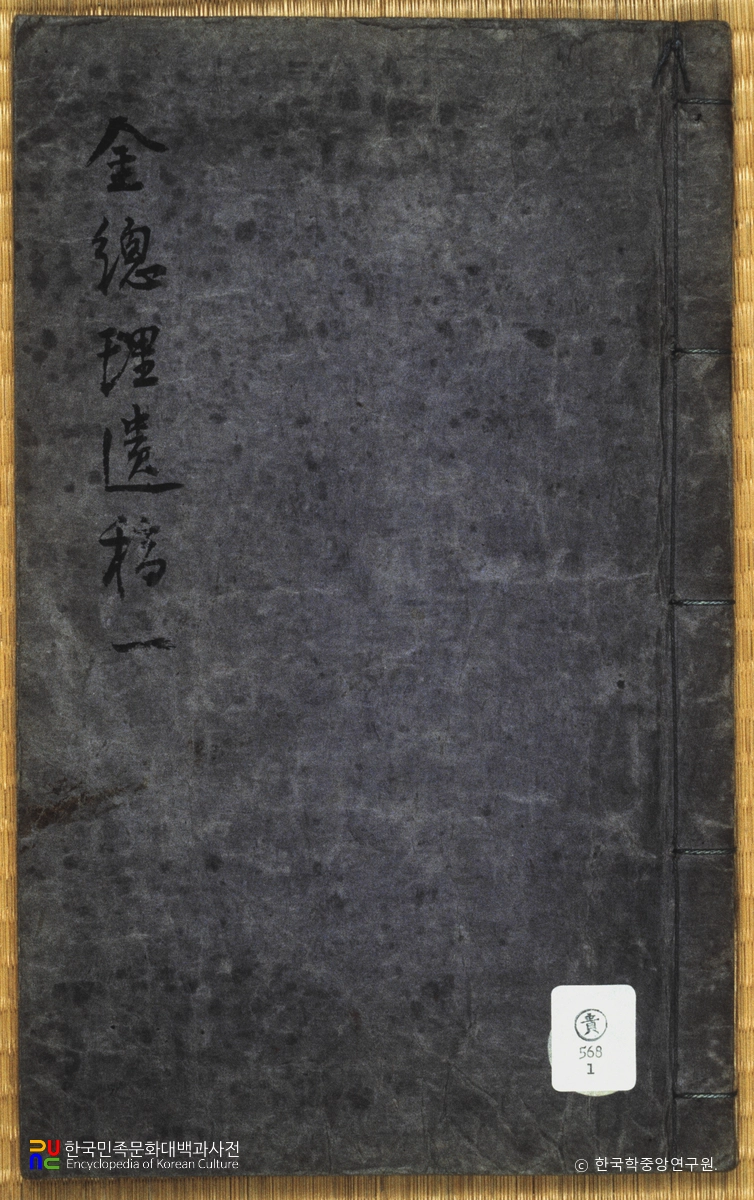 金總理遺稿一
貴
568
1
한국민족문화대백과사전
Encyclopedia of Korean Culture
© 한국학중앙연구원.